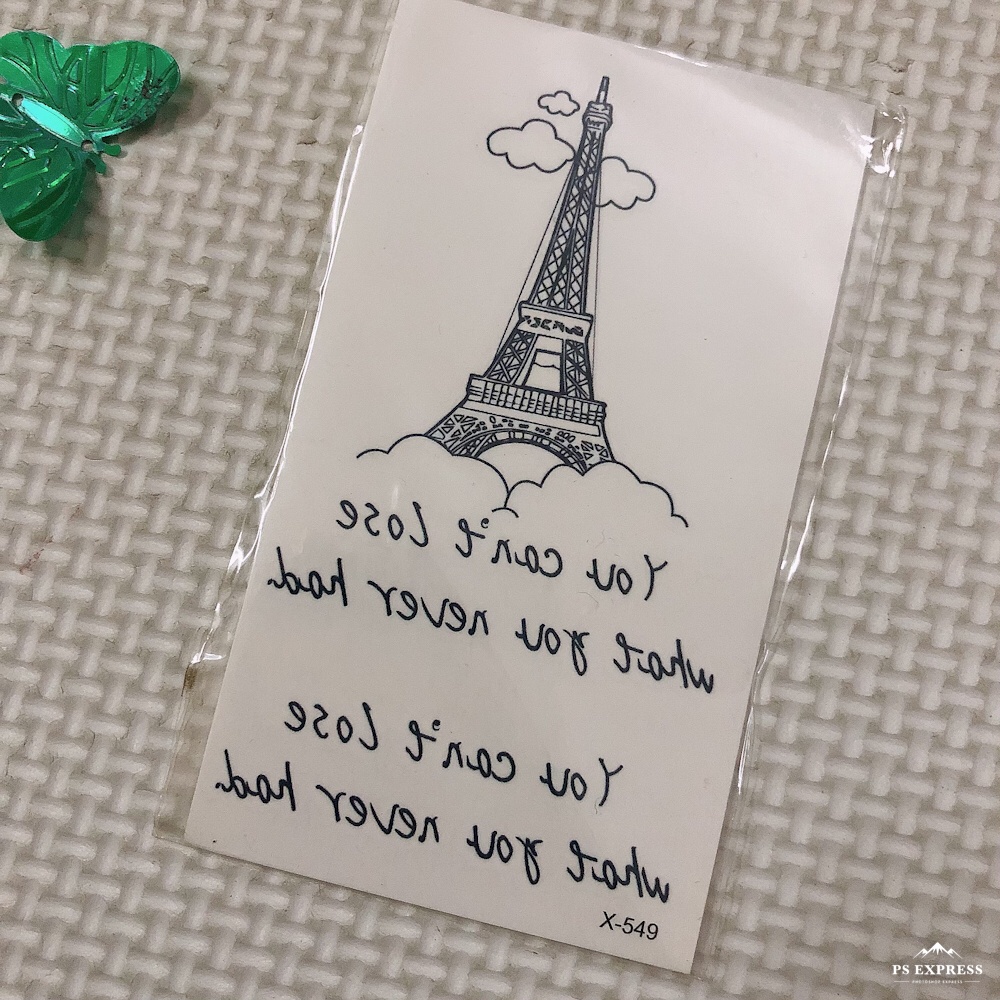 You can't lose
what you never had.
You can't lose
what you never had.
X-549
PS EXPRESS
PHOTOSHOP EXPRESS